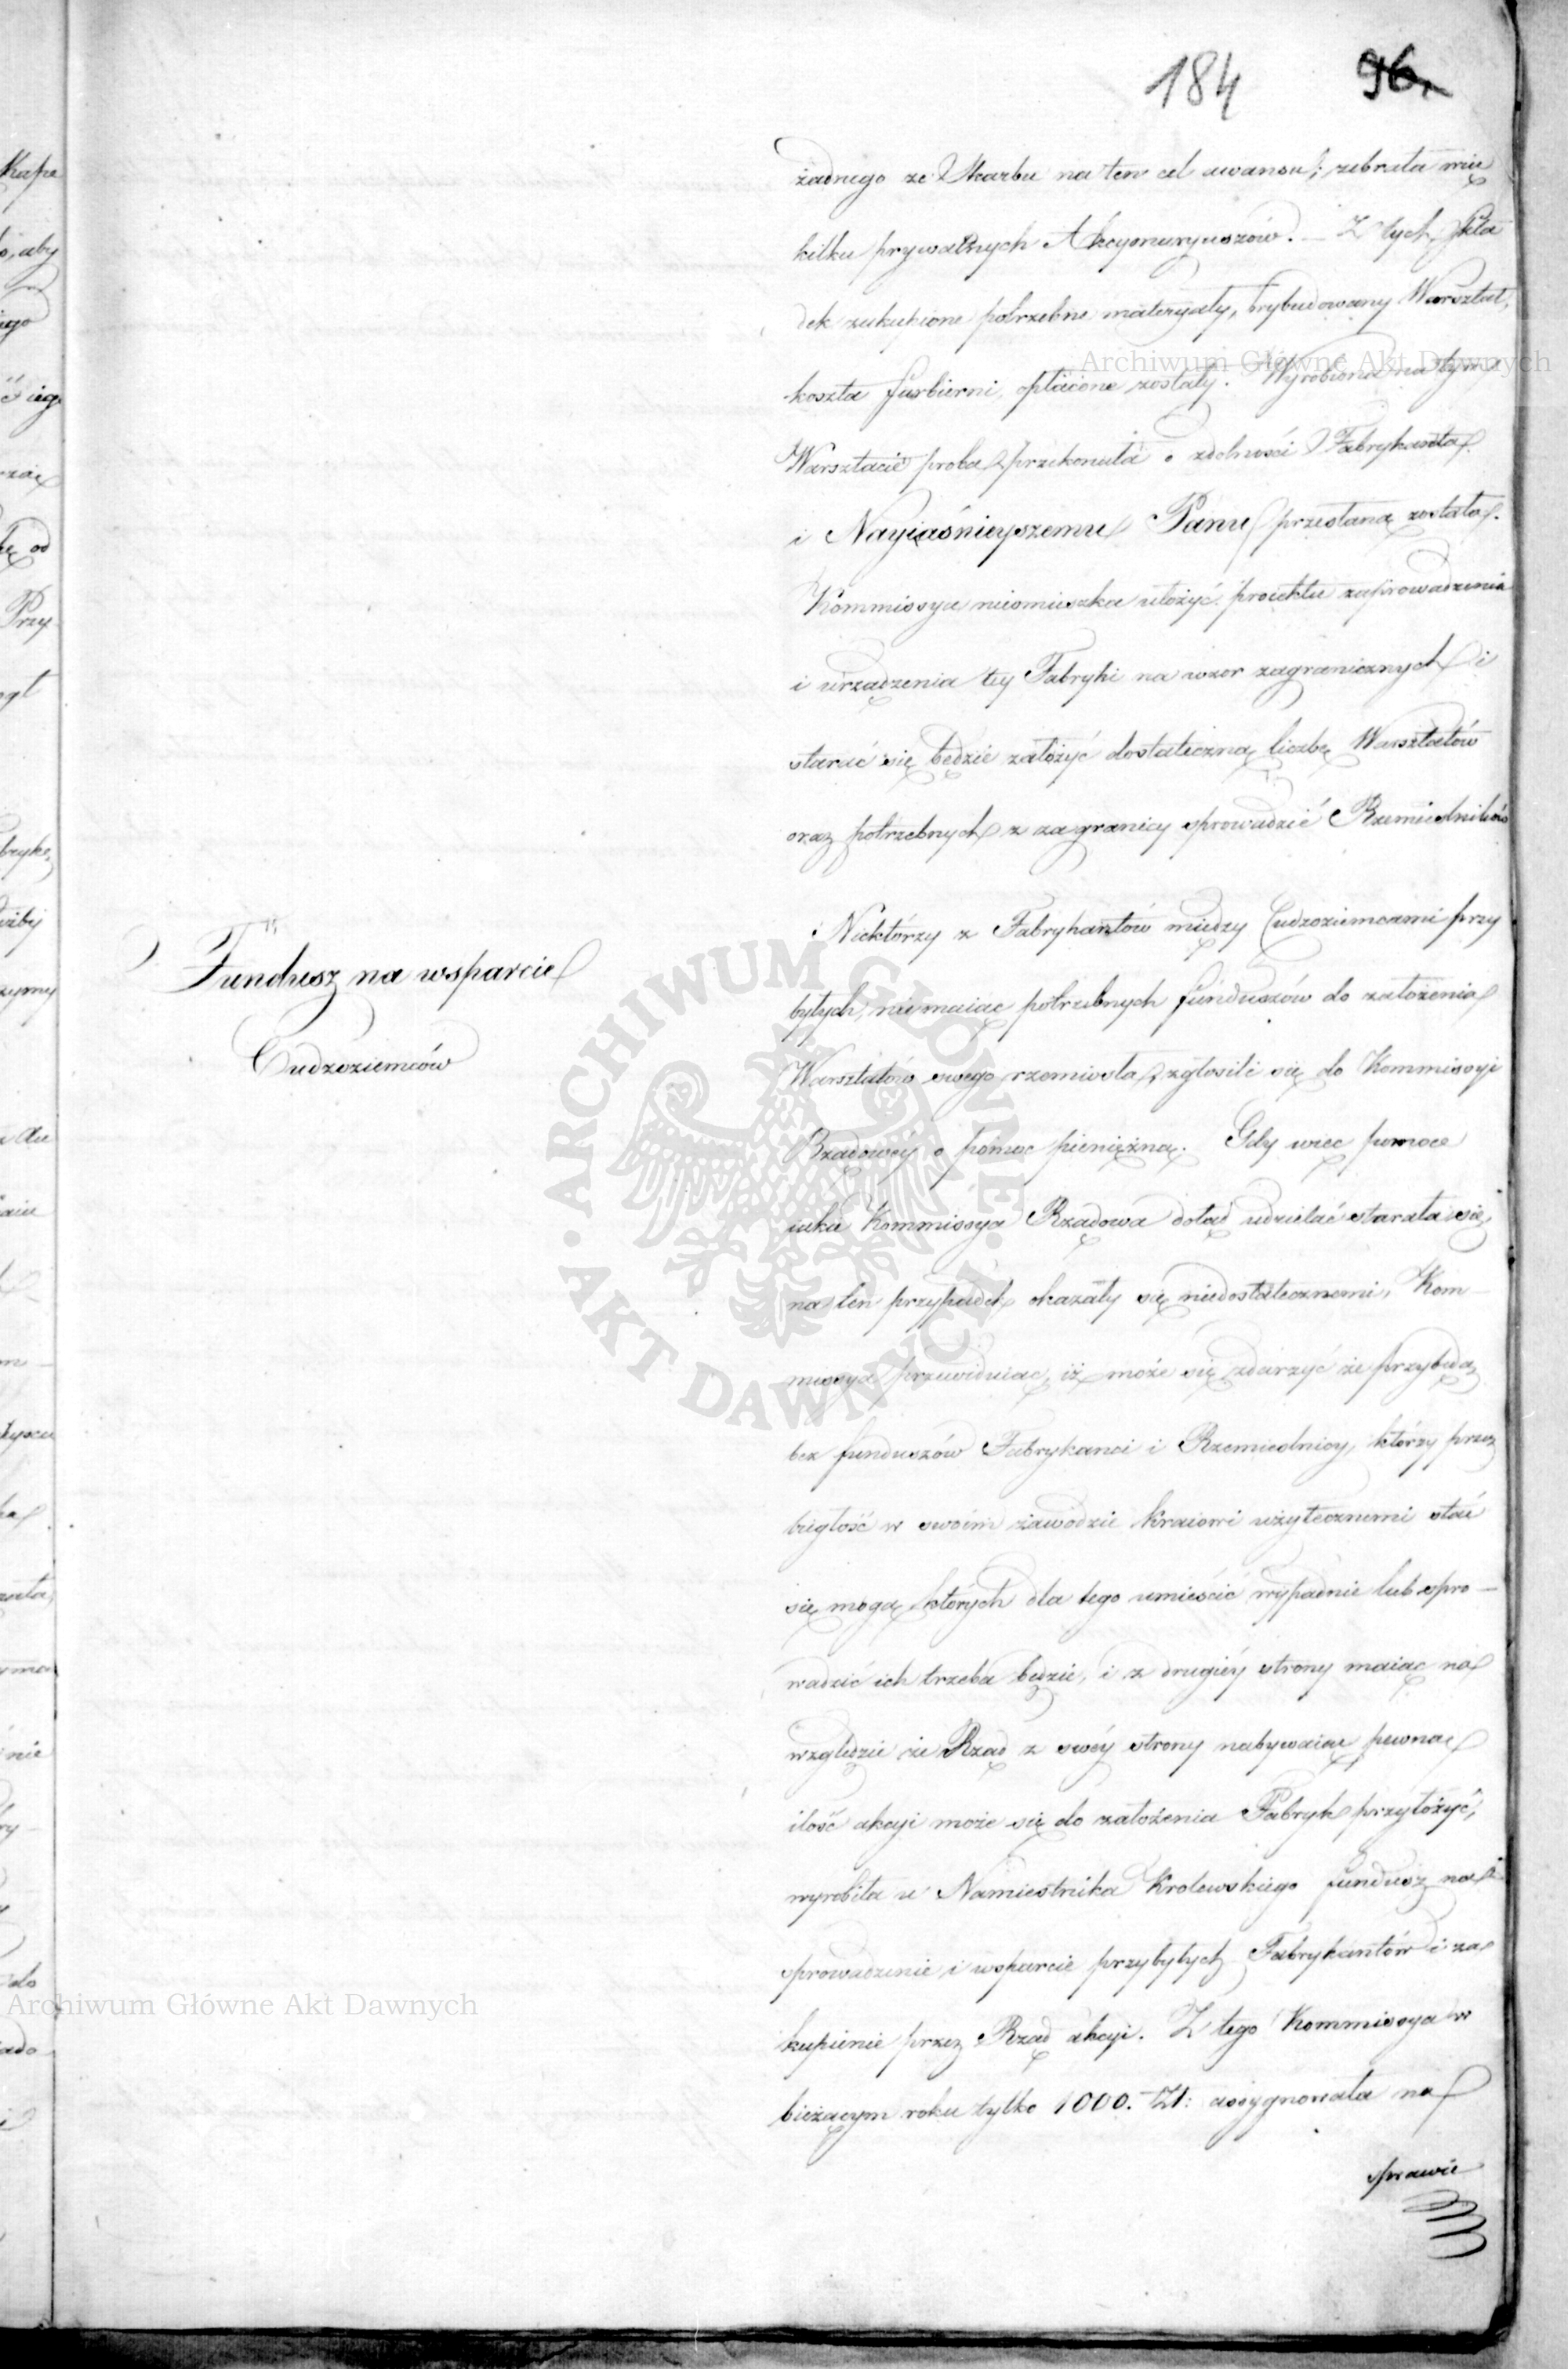 184 96.
żadnego ze Skarbu na ten cel awansu; zebrała mię
kilku prywatnych Akcyonaryuszów. _ Z tych skła
dek zakupione potrzebne materyały, wybudowany Warsztat,
koszta farbierni, opłacone zostały. Wyrobiona na tym
Warsztacie proba przekonała o zdolności Fabrykanta
i Nayiaśnieyszemu Panu przesłaną została.
Kommissya nieomieszka ułożyć proiektu zaprowadzenia
i urządzenia tey Fabryki na wzor zagranicznych i
starać się będzie założyć dostateczną liczbę Warsztatów
oraz potrzebnych z zagranicy sprowadzić Rzemieślników
Niektórzy z Fabrykantów między Cudzoziemcami przy
Fundusz na wsparcie
Cudzoziemców
byłych, niemaiąc potrzebnych funduszów do założenia
Warsztatów swego rzemiosła, zgłosili się do Kommissyi
Rządowéy o pomoc pieniężną. Gdy więc pomoce
iakie Kommissya Rządowa dotąd udzielać starała się,
na ten przypadek okazały się niedostatecznemi, Kom_
missya przewiduiąc, iż może się zdarzyć że przybędą
bez funduszów Fabrykanci i Rzemieślnicy, którzy przez
biegłość w swoim zawodzie kraiowi użytecznemi stać
się mogą, których dla tego umieścić wypadnie lub spro_
wadzić ich trzeba będzie, i z drugiéy strony maiąc na
względzie że Rząd z swéy strony nabywaiąc pewną
ilość akcyi może się do założenia Fabryk przyłożyć,
wyrobiła u Namiestnika Krolewskiego fundusz na
sprowadzenie i wsparcie przybyłych Fabrykantów i za
kupienie przez Rząd akcyi. Z tego Kommissya w
bieżącym roku tylko 1000. Zł: assygnowała na
sprawie
Archiwum Główne Akt Dawnych
Archiwum Główne Akt Dawnych
ARCHIWUM GŁÓWNE · AKT DAWNYCH ·